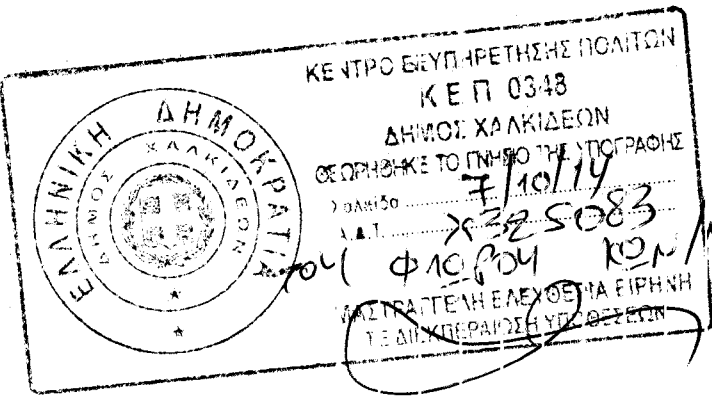 ΕΛΛΗΝΙΚΗ ΔΗΜΟΚΡΑΤΙΑ
ΔΗΜΟΣ ΧΑΛΚΙΔΕΩΝ
ΚΕΝΤΡΟ ΕΞΥΠΗΡΕΤΗΣΗΣ ΠΟΛΙΤΩΝ
Κ Ε Π 0348
ΔΗΜΟΣ ΧΑΛΚΙΔΕΩΝ
ΘΕΩΡΗΘΗΚΕ ΤΟ ΓΝΗΣΙΟ ΤΗΣ ΥΠΟΓΡΑΦΗΣ
Χαλκίδα 7/10/14
Α.Δ.Τ. Χ325083
του
ΜΑΣΤΡΑΓΓΕΛΗ ΕΛΕΥΘΕΡΙΑ ΕΙΡΗΝΗ
ΤΕ ΔΙΕΚΠΕΡΑΙΩΣΗ ΥΠΟΘΕΣΕΩΝ